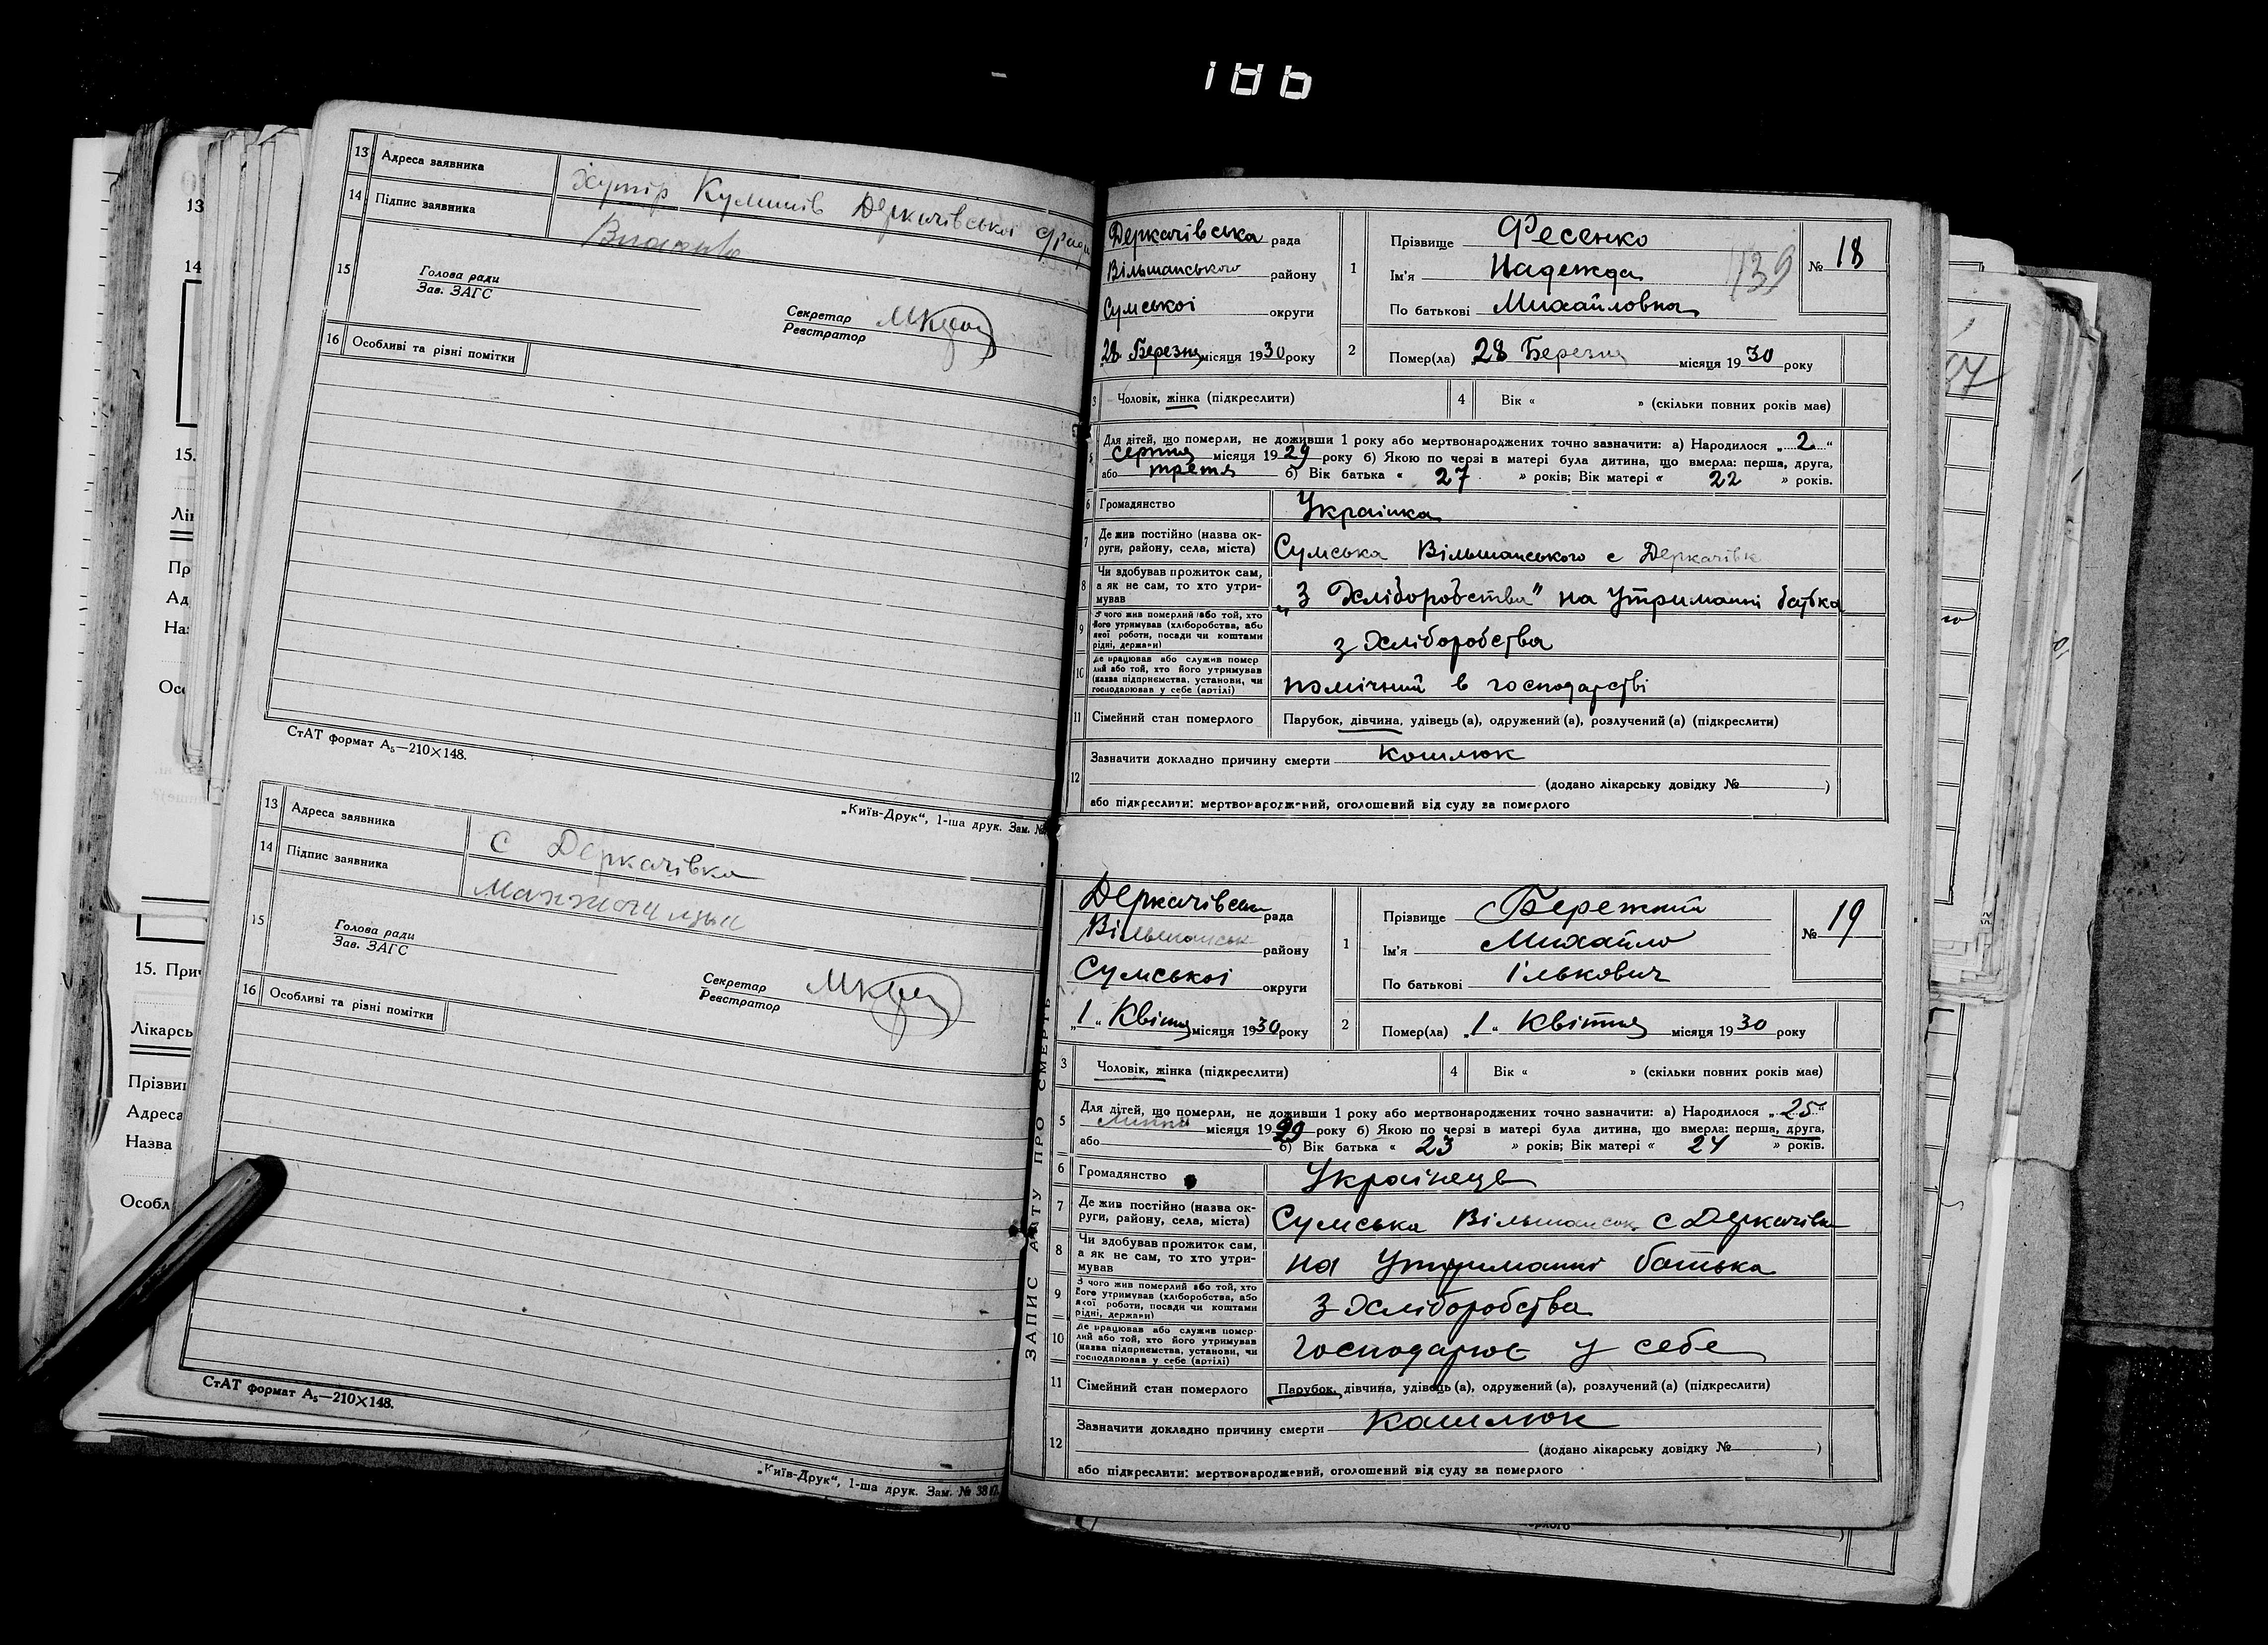 13 Адреса заявника Хутір Кулишів Деркачівської с/ради
14 Підпис заявника
15 Голова ради
Зав. ЗАГС
Секретар
Реєстратор
16 Особливі та різні помітки
СтАТ формат А₅—210×148.
„Київ-Друк“, 1-ша друк. Зам. №
13 Адреса заявника с Деркачівка
14 Підпис заявника
15 Голова ради
Зав. ЗАГС
Секретар
Реєстратор
16 Особливі та різні помітки
СтАТ формат А₅—210×148.
„Київ-Друк“, 1-ша друк. Зам. № 38
13
14
15.
Лі
Пр
Ад
На
Ос
15. При
Лікарсь
Прізви
Адреса
Назва
Особл
ЗАПИС АКТУ ПРО СМЕРТЬ
Деркачівська рада
Вільшанського району
Сумської округи
„28 Березня місяця 1930 року
1 Прізвище Фесенко
Ім'я Надежда
По батькові Михайловна
139
№ 18
2 Помер(ла) 28 Березня місяця 1930 року
3 Чоловік, жінка (підкреслити)
4 Вік « » (скільки повних років має)
5 Для дітей, що померли, не доживши 1 року або мертвонароджених точно зазначити: а) Народилося „2“
серпня місяця 1929 року б) Якою по черзі в матері була дитина, що вмерла: перша, друга,
або третя б) Вік батька « 27 » років; Вік матері « 22 » років.
6 Громадянство Українка
7 Де жив постійно (назва ок-
руги, району, села, міста) Сумська Вільшанського с Деркачівк
8 Чи здобував прожиток сам,
а як не сам, то хто утри-
мував „З Хліборобства" на утриманні батька
9 З чого жив померлий або той, хто
його утримував (хліборобства, або
якої роботи, посади чи коштами
рідні, держави) з Хліборобства
10 Де працював або служив помер-
лий або той, хто його утримував
(назва підприємства, установи, чи
господарював у себе (артілі) помічний в господарстві
11 Сімейний стан померлого Парубок, дівчина, удівець (а), одружений (а), розлучений (а) (підкреслити)
12 Зазначити докладно причину смерти кошлюк
(додано лікарську довідку № )
або підкреслити: мертвонароджений, оголошений від суду за померлого
Деркачівськ рада
Вільшанськ району
Сумської округи
„1“ Квітня місяця 1930 року
1 Прізвище Бережний
Ім'я Михайло
По батькові Ількович
№ 19
2 Помер(ла) „1“ Квітня місяця 1930 року
3 Чоловік, жінка (підкреслити)
4 Вік « » (скільки повних років має)
5 Для дітей, що померли, не доживши 1 року або мертвонароджених точно зазначити: а) Народилося „25“
місяця 1929 року б) Якою по черзі в матері була дитина, що вмерла: перша, друга,
або б) Вік батька « 23 » років; Вік матері « 24 » років.
6 Громадянство Українець
7 Де жив постійно (назва ок-
руги, району, села, міста) Сумська Вільшанськ. с Деркачівк
8 Чи здобував прожиток сам,
а як не сам, то хто утри-
мував на утриманні батька
9 З чого жив померлий або той, хто
його утримував (хліборобства, або
якої роботи, посади чи коштами
рідні, держави) з Хліборобства
10 Де працював або служив помер-
лий або той, хто його утримував
(назва підприємства, установи, чи
господарював у себе (артілі) господарює у себе
11 Сімейний стан померлого Парубок, дівчина, удівець (а), одружений (а), розлучений (а) (підкреслити)
12 Зазначити докладно причину смерти кашлюк
(додано лікарську довідку № )
або підкреслити: мертвонароджений, оголошений від суду за померлого